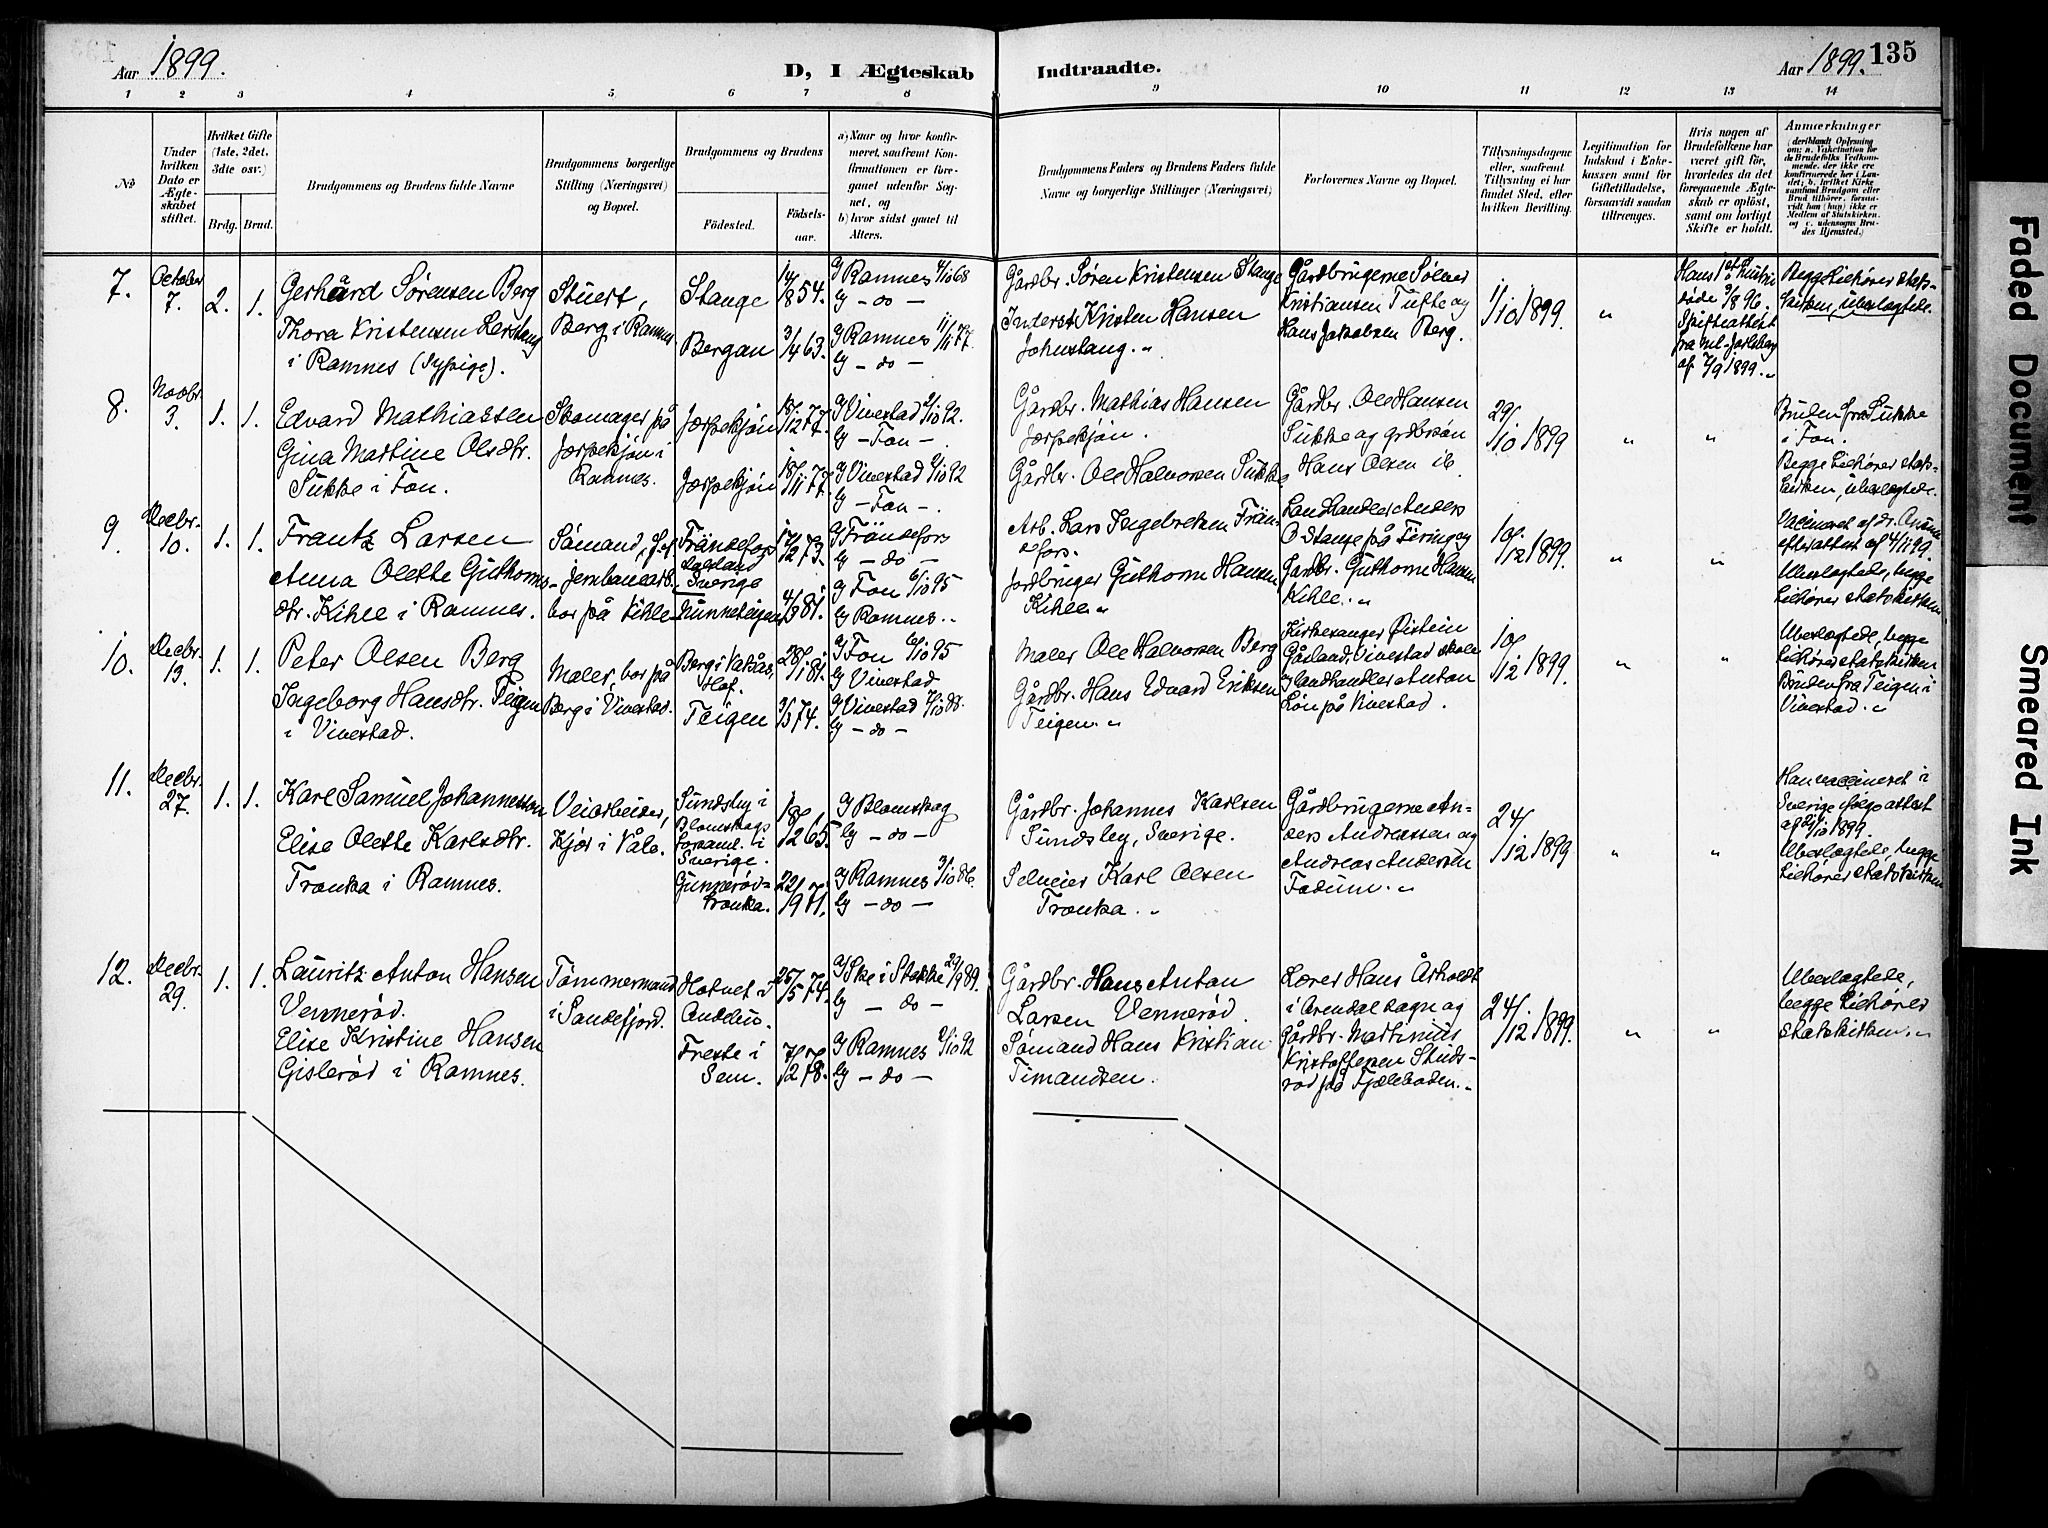 Aar 1899.
D, I Ægteskab
Indtraadte.
Aar 1899. 135
1 2 3 4 5 6 7 8 9 10 11 12 13 14
No
Under
hvilken
Dato er
Ægte-
skabet
stiftet.
Hvilket Gifte
(1ste, 2det,
3dte osv.)
Brdg.
Brud.
Brudgommens og Brudens fulde Navne
Brudgommens borgerlige
Stilling (Næringsvei)
og Bopæl.
Brudgommens og Brudens
Födested.
Födsels-
aar.
a) Naar og hvor konfir-
meret, saafremt Kon-
firmationen er fore-
gaaet udenfor Sog-
net, og
b) hvor sidst gaaet til
Alters.
Brudgommens Faders og Brudens Faders fulde
Navne og borgerlige Stillinger (Næringsvei)
Forlovernes Navne og Bopæl.
Tillysningsdagene
eller, saafremt
Tillysning ei har
fundet Sted, efter
hvilken Bevilling.
Legitimation for
Indskud i Enke-
kassen samt for
Giftetilladelse,
forsaavidt saadan
tiltrænges.
Hvis nogen af
Brudefolkene har
været gift för,
hvorledes da det
foregaaende Ægte-
skab er oplöst,
samt om lovligt
Skifte er holdt.
Anmærkninger
(deriblandt Oplysning
om: a. Vakcination for
de Brudefolks Vedkom-
mende, der ikke ere
konfirmerede her i Lan-
det; b. hvilket Kirke-
samfund Brudgom eller
Brud tilhörer, forsaa-
vidt han (hun) ikke er
Medlem af Statskirken,
og c. udensogns Bru-
des Hjemsted.)
7.
October
7.
2. 1.
Gerhård Sørensen Berg
Thora Kristensen
i Ramnes (Sypige).
Stuert,
Berg i Ramnes
Stange
Bergan
14/8 54.
3/4 63.
a) Ramnes 4/10 68
b) - do -
a) Ramnes 11/11 77.
b) - do -
Gårdbr. Sören Kristensen Stange
Inderst Kristen Hansen
Gårdbrugerne Sølver
Kristiansen Tufte og
Hans Jakobsen Berg.
1/10 1899.
"
Hans 1st hustru
døde 9/8 96.
Skifteattest
af 7/9 1899. "
Begge tilhører stats-
kirken, ubeslægtede.
8.
Novbr.
3.
1. 1.
Edvard Mathiassen
Gina Martine Olsdtr.
Sukke i Fon.
Skomager på
Jerpekjøn i
Ramnes.
Jerpekjøn
Jerpekjøn
18/12 77.
18/11 77.
a) Vivestad 2/10 92.
b) - Fon -.
a) Vivestad 2/10 92
b) - Fon -.
Gårdbr. Mathias Hansen
Jerpekjøn.
Gårdbr. Ole Halvorsen Sukke
Gårdbr. Ole Hansen
Sukke og grdbrsøn
Hans Olsen ib.
29/10 1899
" "
Bruden fra Sukke
i Fon.
Begge tilhører stats-
kirken, ubeslægtede.
9.
Decbr.
10.
1. 1.
Frantz Larsen
Anna Olette Guthorms-
dtr. Kihle i Ramnes.
Sømand, f.e.
jernbanearb.
bor på Kihle
Frändefors
Dalsland
Sverige
Nunneteigen
4/3 81.
a) Frändefors
b) - do -
a) Fon 6/10 95
b) Ramnes. .
Arb. Lars Ingebretsen Frän-
defors.
Jordbruger Guthorm Hansen
Kihle. "
Landhandler Anders
Odstange på Firing og
Gardbr. Guthorm Hansen
Kihle. "
10/12 1899.
" "
efter attest af 4/11 99.
Ubeslægtede, begge
tilhører statskirken
10.
Decbr.
13.
1. 1.
Peter Olsen Berg
Ingeborg Hansdtr. Teigen
i Vivestad.
Maler, bor på
Berg i Vivestad.
Berg i Vatnås,
Hof.
Teigen
28/1 81.
3/3 74.
a) Fon 6/10 95
b) Vivestad
a) Vivestad 7/10 88.
b) - do -
Maler Ole Halvorsen Berg
Gårdbr. Hans Edvard Eriksen
Teigen. "
Kirkesanger Øistein
Gåsland, Vivestad skole
og landhandler Anton
Løn på Vivestad.
10/12 1899.
" "
Ubeslægtede, begge
tilhører statskirken
Bruden fra Teigen i
Vivestad. "
11.
Decbr.
27.
1. 1.
Karl Samuel Johannesson
Elise Olette Karlsdtr.
Tranka i Ramnes.
Veiarbeider,
Kjør i Våle.
Sundsby i
Blomskogs
forsaml. i
Sverige.
Gunnerød-
tranka.
18/12 65.
22/9 71.
a) Blomskog
b) - do -
a) Ramnes 3/10 86.
b) - do -
Gårdbr. Johannes Karlsen
Sundsby, Sverige.
Selveier Karl Olsen
Tranka. "
Gårdbrugerne An-
ders Andreassen og
Andreas Andersen
Fadum. "
24/12 1899
" "
Han vaccineret i
Sverige ifølge attest
1899.
Ubeslægtede, begge
tilhører statskirken
12.
Decbr.
29.
1. 1.
Lauritz Anton Hansen
Vennerød.
Elise Kristine Hansen
Gislerød i Ramnes.
Tømmermand
i Sandefjord.
Hotvet i
Andebu.
Freste i
Sem.
25/5 74.
7/12 78.
a) Ske i Stokke 29/9 89.
b) - do -
a) Ramnes 2/10 92
b) - do -
Gårdbr. Hans Anton
Larsen Vennerød.
Sømand Hans Kristian
Timandsen.
Lærer Hans Åsholdt
i Arendal sogn og
Gårdbr. Martinius
Kristoffersen Studs-
rød på Fjeleboden. "
24/12 1899.
" "
Ubeslægtede,
begge tilhører
statskirken. "
Faded Document
Smeared Ink